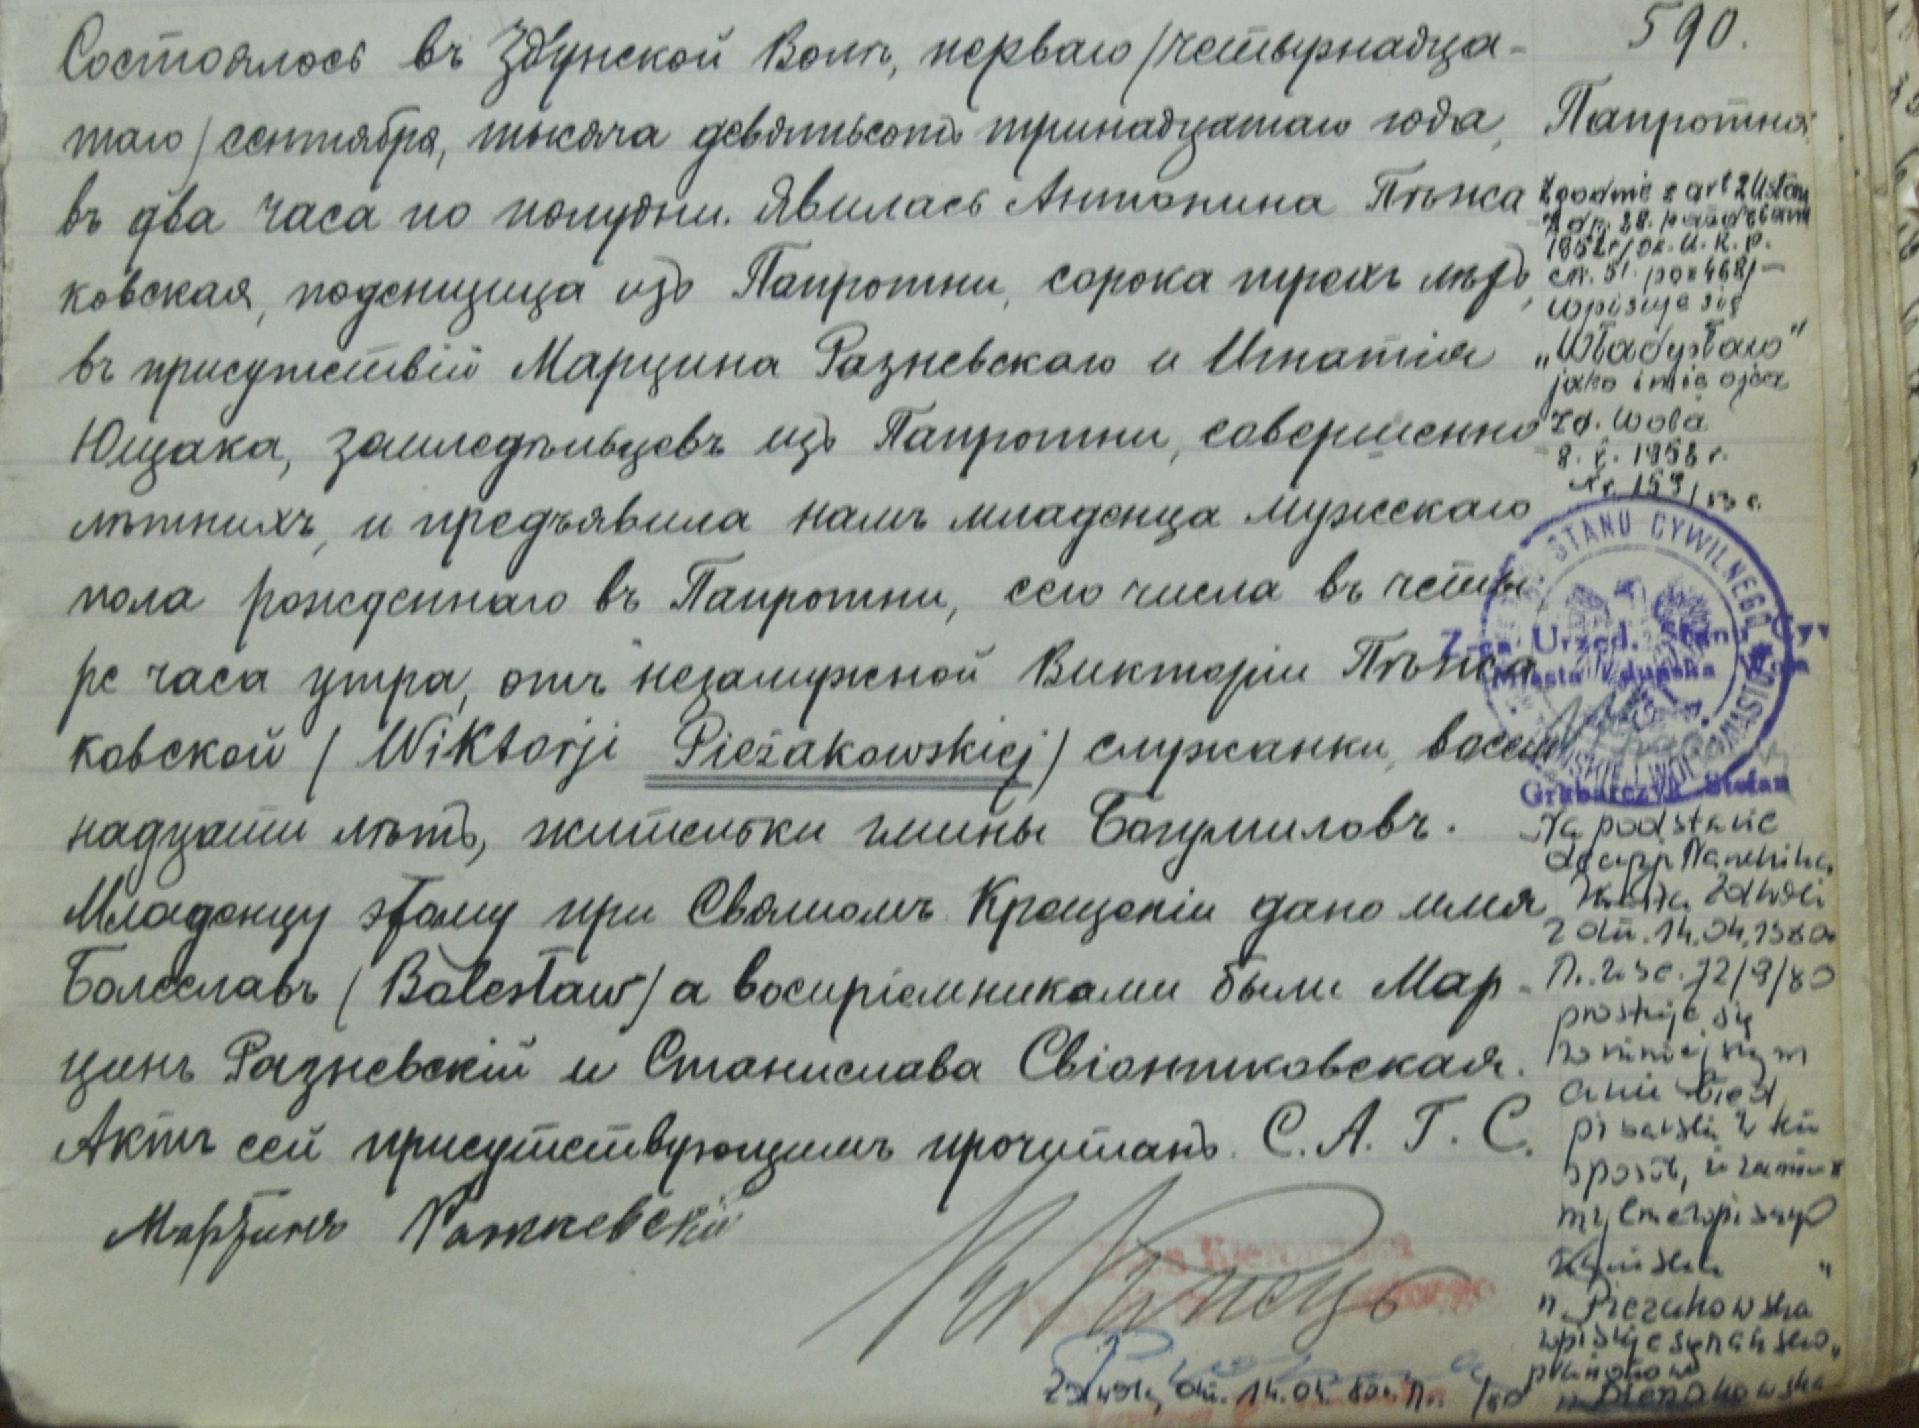 Состоялось въ Здунской Волѣ, перваго /четырнадца-
таго/ сентября, тысяча девятьсотъ тринадцатаго года,
въ два часа по полудни. Явилась Антонина Пѣжа
ковская, поденщица изъ Папротни, сорока трехъ лѣтъ,
въ присутствіи Марцина Разневскаго и Игнатія
Ющака, земледѣльцевъ изъ Папротни, совершенно
лѣтнихъ, и предъявила намъ младенца мужскаго
пола рожденнаго въ Папротни, сего числа въ четы
ре часа утра, отъ незамужной Викторіи Пѣжа
ковской / Wiktorji Pieżakowskiej / служанки, восем
надцати лѣтъ, жительки гмины Богумиловъ.
Младенцу этому при Святомъ Крещеніи дано имя
Болеславъ / Bolesław / а воспріемниками были Мар-
цинъ Разневскій и Станислава Свіонтковская.
Актъ сей присутствующимъ прочитанъ. С. А. Г. С.
590.
Папротня
Zgodnie z art 2 Ustawy
z dn. 28. października
1952r/Dz. U. R. P.
Nr. 51 poz 468/-
wpisuje się
„Władysław"
jako imię ojca
Zd. Wola
8. 1958 r.
Nr. 159/
STANU CYWILNEGO
Z-ca Urzęd. Stanu Cyw
Miasta Zduńska Wola
Grabarczyk Stefan
Na podstawie
decyzji Naczelnika
Miasta Zd. Woli
z dn. 14.04.1980
prostuje się
w niniejszym
akcie błąd
sposób, że zamiast
mylnie wpisanego
nazwiska "
n. Piezakowska
wpisuje się nazwisko
prawidłowe
Zd. Wola, dn. 14.04.80r.